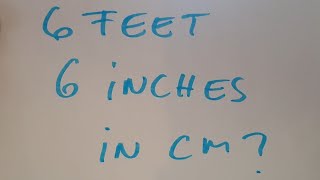 6 FEET
6 iNCHES
iN CM?